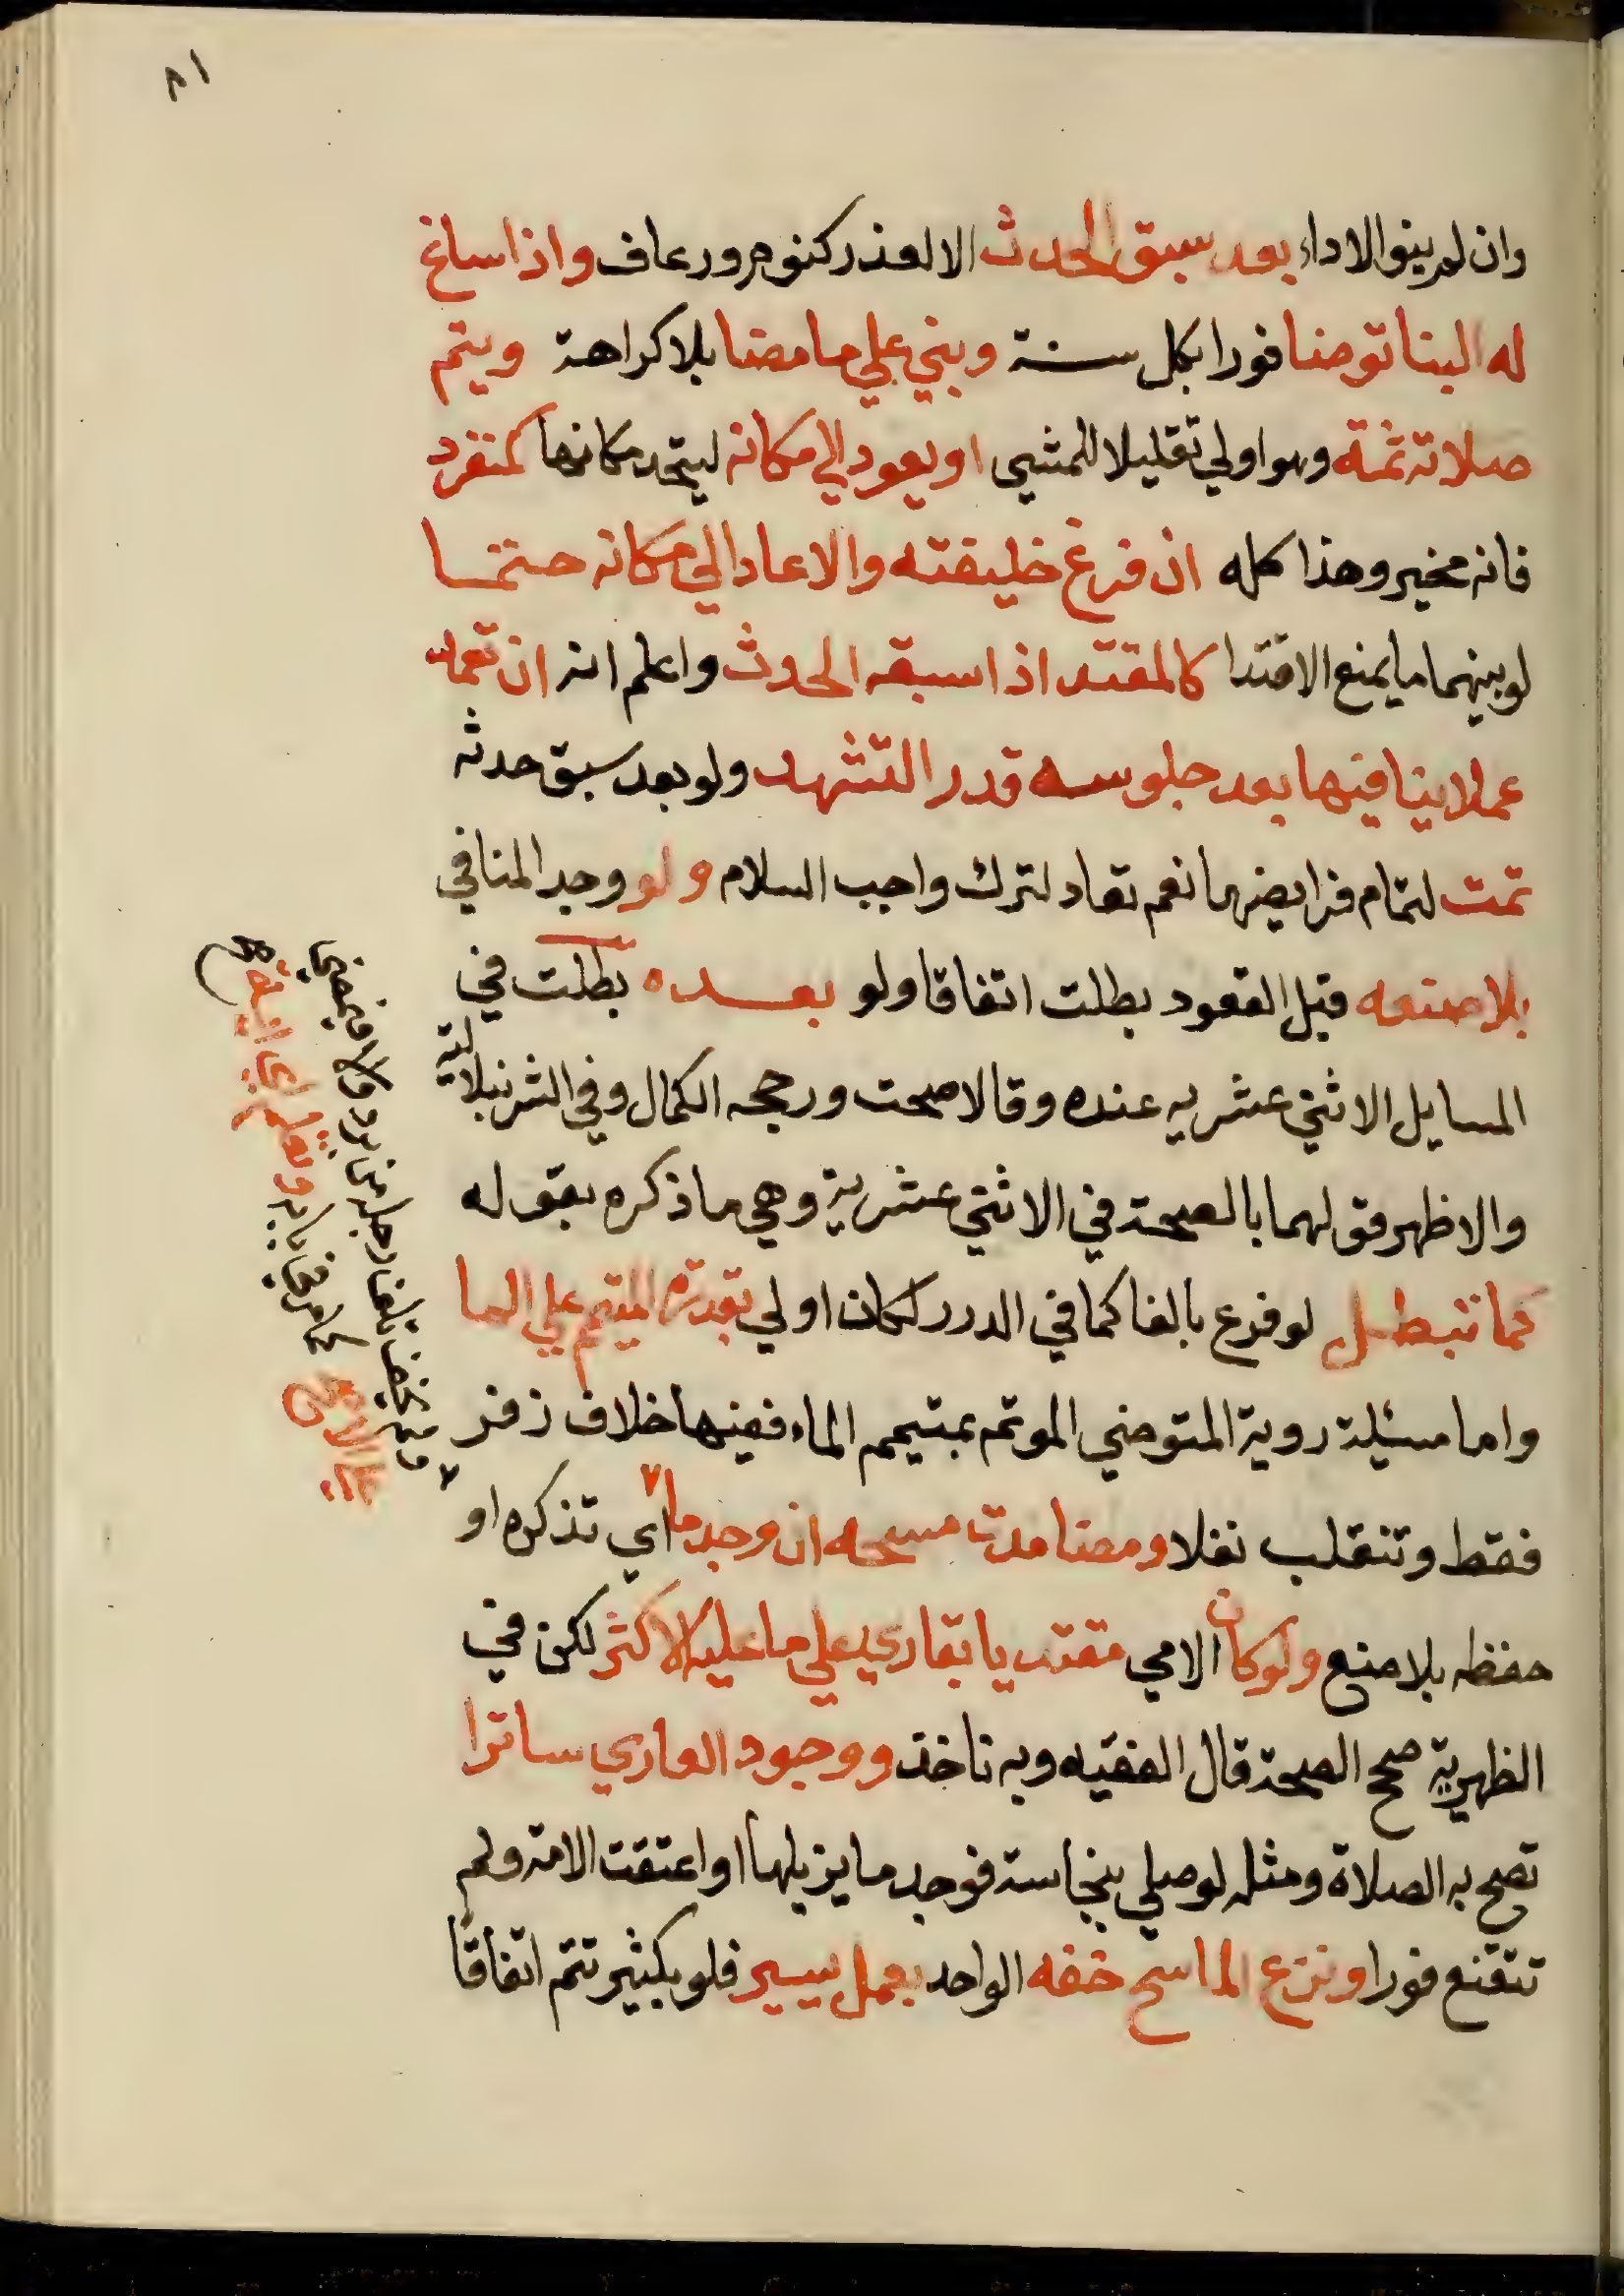 ٨١
وان لم ينو الاداء بعد سبق الحدث الا لعذر كنوم ورعاف واذا ساغ
له البنا توضا فورا بكل سنة وبني علي ما مضا بلا كراهة ويتم
صلاته ثمة وهو اولي تقليلا للمشي او يعود الي مكانه ليتحد مكانها كمنفرد
فانه مخير وهذا كله ان فرغ خليفته والا عاد الي مكانه حتما
لو بينهما ما يمنع الاقتدا كالمقتد اذا سبقه الحدث واعلم انه ان تعمد
عملا ينافيها بعد جلوسه قدر التشهد ولو بعد سبق حدثه
تمت لتمام فرايضها نعم تعاد لترك واجب السلام ولو وجد المنافي
بلا صنعه قبل القعود بطلت اتفاقا ولو بعده بطلت في
المسايل الاثني عشريه عنده وقالا صحت ورجحه الكمال وفي الشرنبلالية
والاظهر قولهما بالصحة في الاثني عشرية وهي ما ذكره بقوله
كما تبطل لو فرع بالفا كما في الدرر لكان اولي بقدرة المتيمم علي الما
واما مسئلة روية المتوضي الموتم بمتيمم الماء ففيها خلاف زفر
فقط وتنقلب نفلا ومضا مدت مسحه ان وجد ما٧ اي تذكره او
حفظه بلا صنع ولو كان الامي مقتديا بقاري علي ما عليه الاكثر لكن في
الظهيرية صحح الصحة قال الفقيه وبه ناخذ ووجود العاري ساترا
تصح به الصلاة ومثله لو صلي بنجاسة فوجد ما يزيلها او اعتقت الامة ولم
تتقنع فورا ونزع الماسح خفه الواحد بعمل يسير فلو بكثير تتم اتفاقا